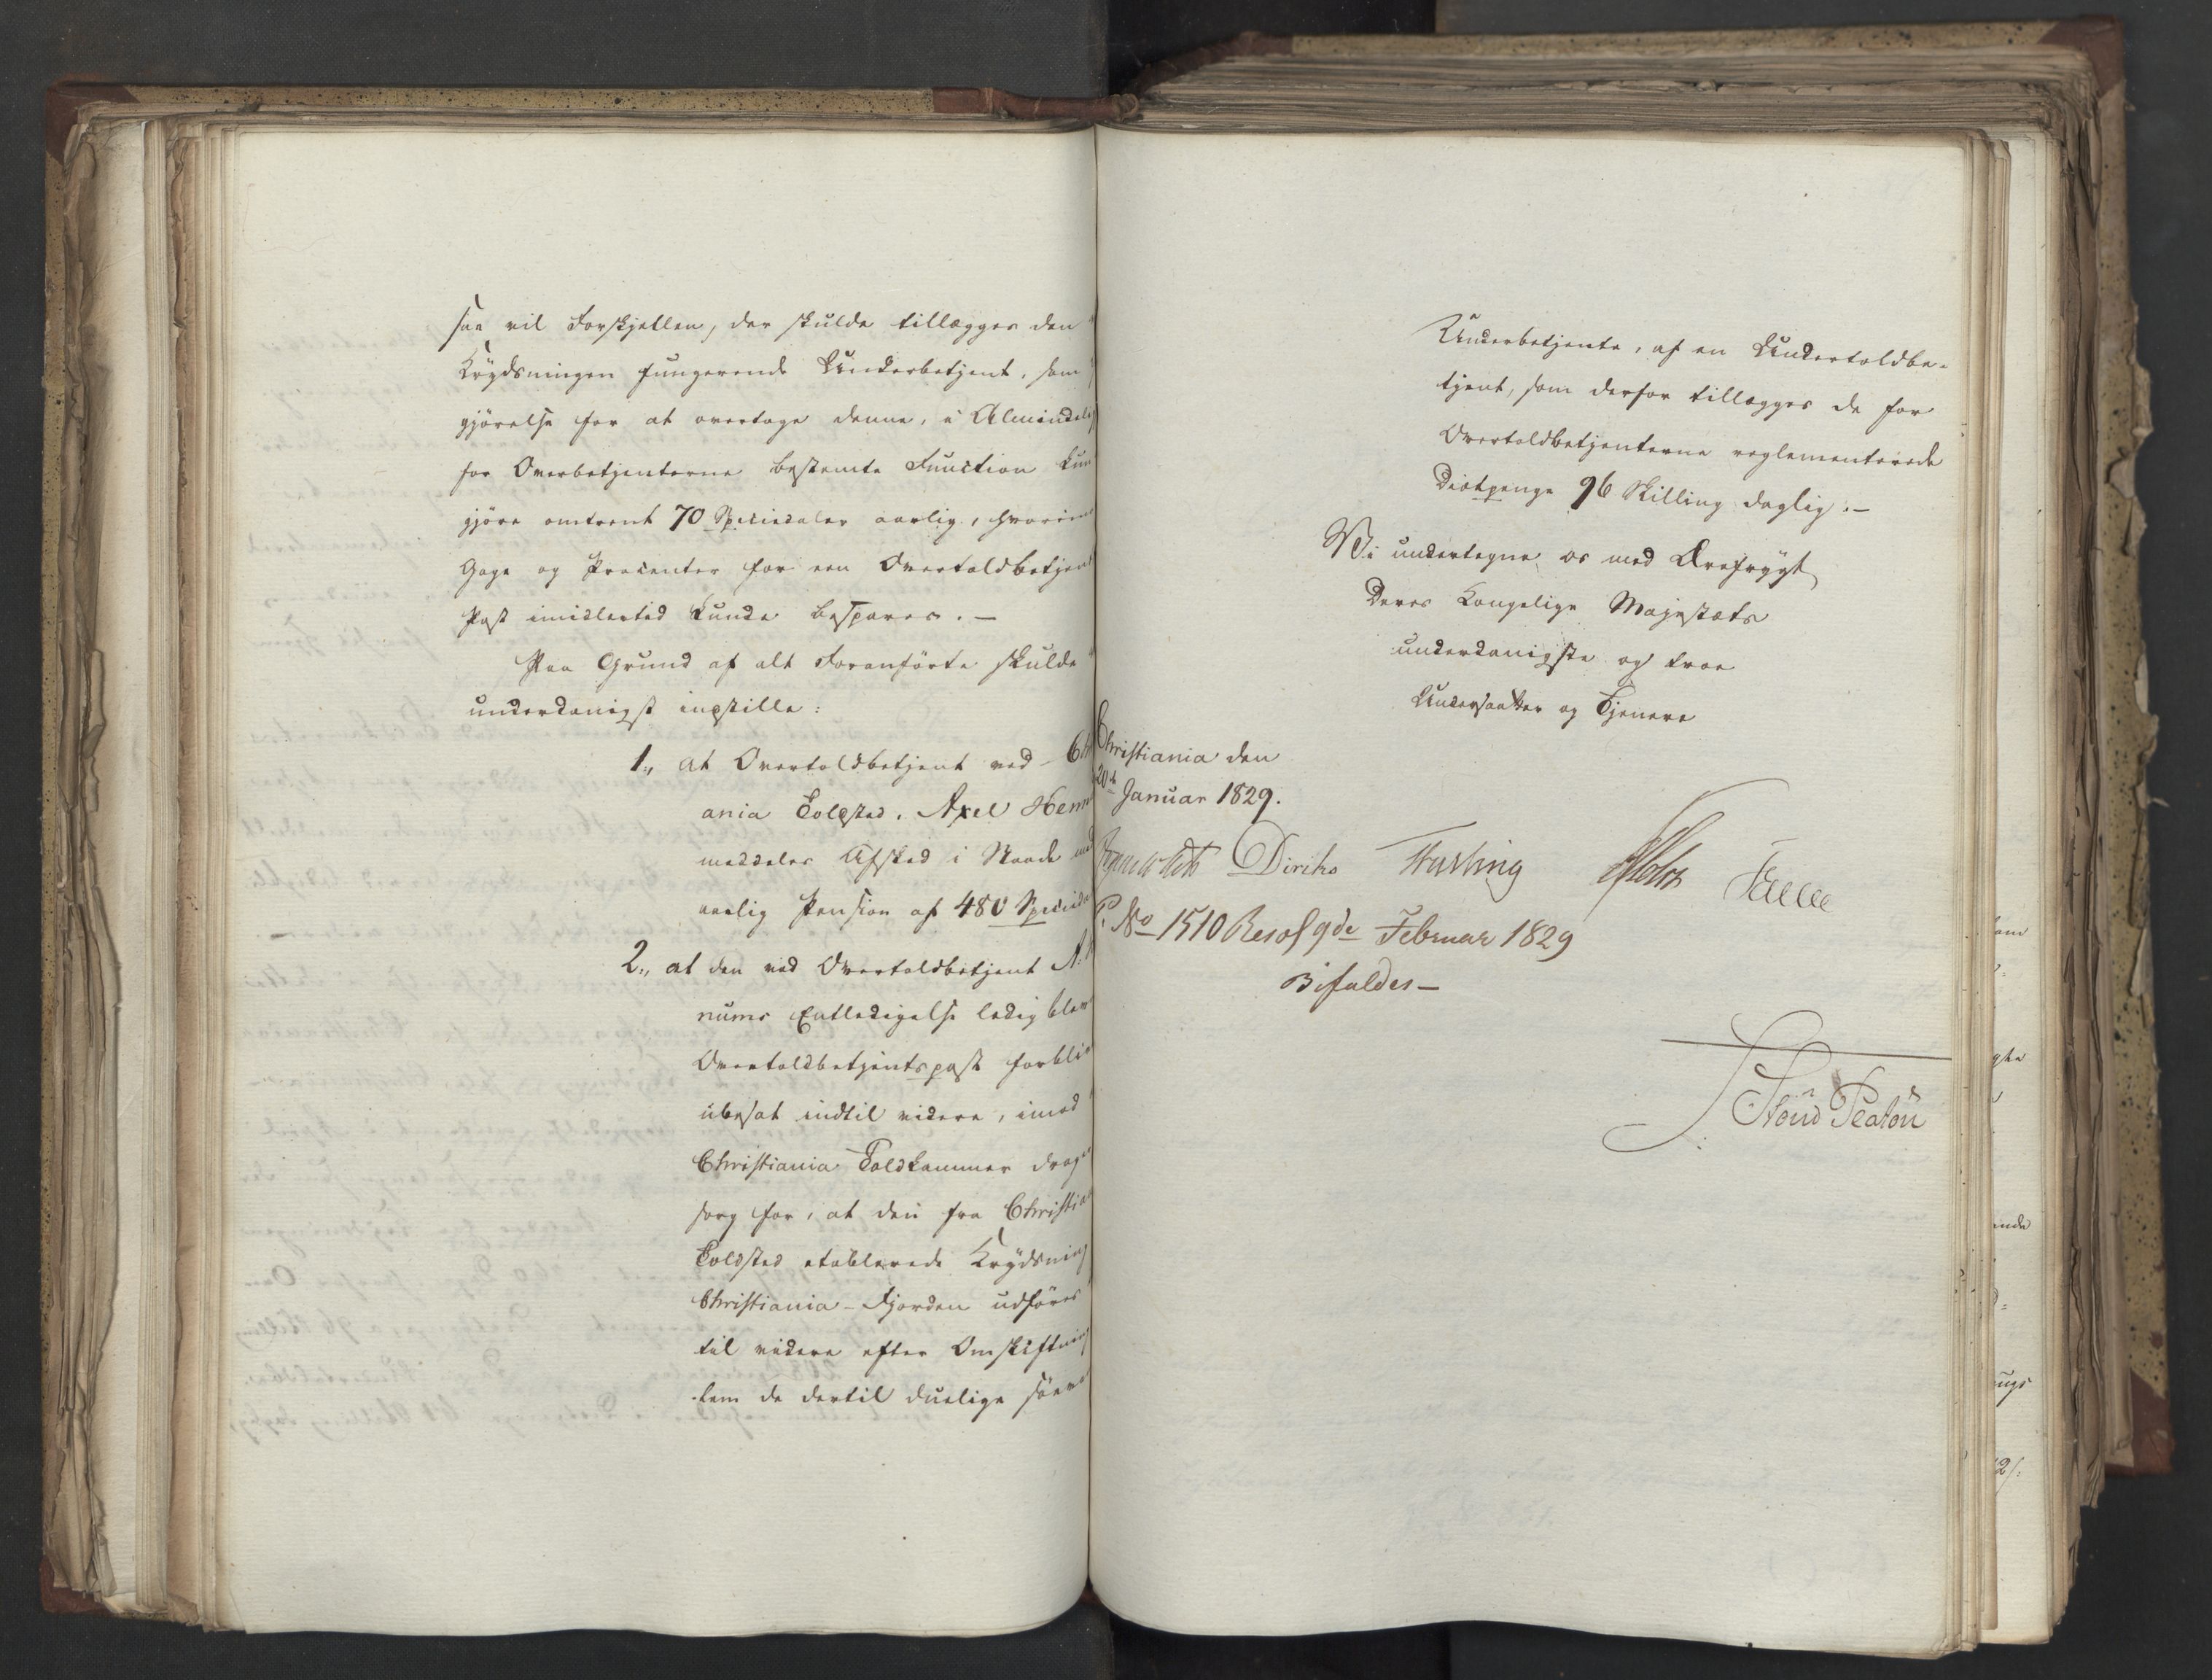 saa vil Forskjellen, der skulde tillægges den
Krydsningen fungerende Underbetjent, som
gjørelse for at overtage denne, i Almindelig
for Overbetjenterne bestemte Function kun
gjøre omtrent 70 Speciedaler aarlig, hvorimod
Gage og Procenter for een Overtoldbetjent
Post imidlertid kunde bespares. —
Paa Grund af alt Foranførte skulde
underdanigst indstille:
1., at Overtoldbetjent ved Christi
ania Toldsted, Axel Hen
meddeles Afsked i Naade med
aarlig Pension af 480 Specieda
2., at den ved Overtoldbetjent A.
nums Entledigelse ledig blevne
Overtoldbetjentspost forbliver
ubesat indtil videre, imod
Christiania Toldkammer drager
sorg for, at den fra Christia
Toldsted etablerede Krydsning
Christiania-Fjorden udføres
til videre efter Omskiftning
lem de dertil duelige
Underbetjente, af en Undertoldbe-
tjent, som derfor tillægges de for
Overtoldbetjenterne reglementerede
Diætpenge 96 Skilling daglig. —
Vi undertegne os med Ærefrygt
Deres Kongelige Majestæts
underdanigste og troe
Undersaatter og Tjenere
Christiania den
20de Januar 1829.
Diriks Fasting Holst
P. No 1510 Resol 9de Februar 1829
Bifaldes —